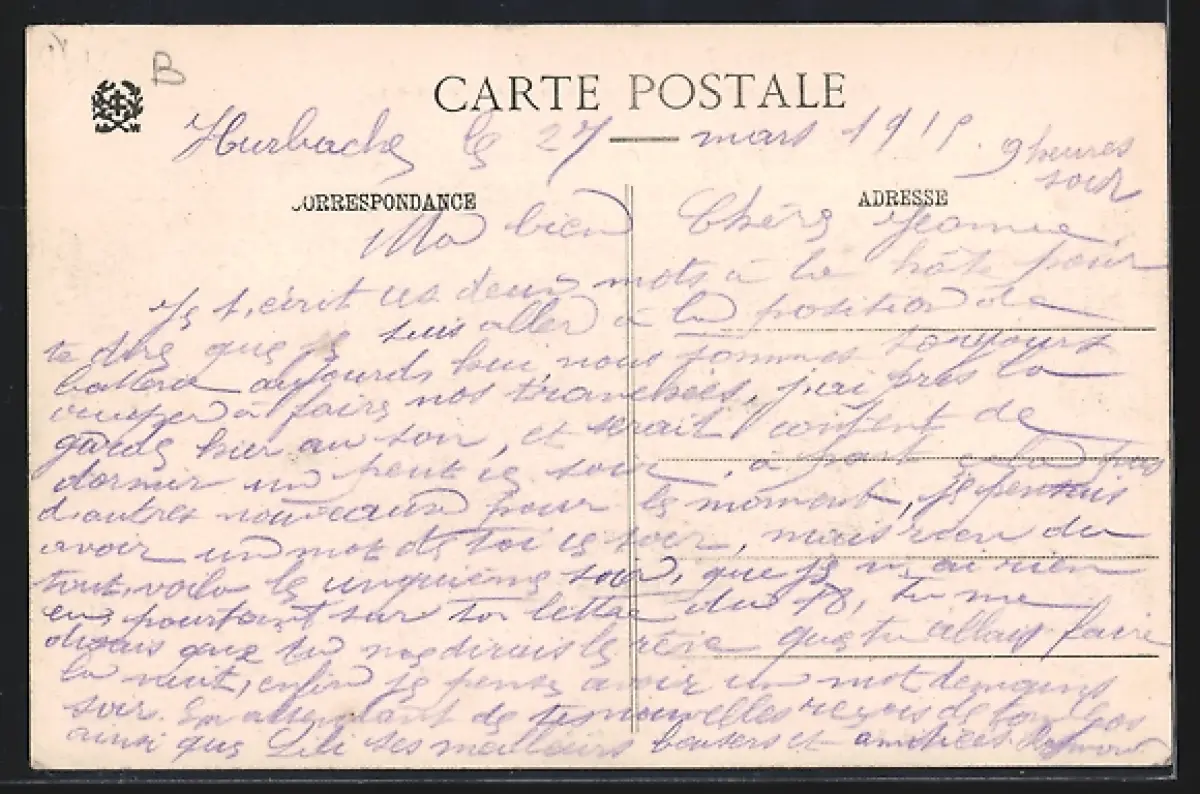 B
CARTE POSTALE
Hurbache le 27 mars 1915. 9 heures
soir
CORRESPONDANCE
ADRESSE
Ma bien Chère Jeanne,
Je t'écrit ces deux mots à la hâte pour
te dire que je suis aller à la position de
batterie aujourds hui, nous sommes toujours
à faire nos tranchées, j'ai pris la
garde hier au soir, et serait content de
dormir un peut ce soir, à part cela pas
d'autres nouveaux pour le moment, je pensais
avoir un mot de toi ce soir, mais rien du
tout, voila le cinquième soir, que je n'ai rien
eu, pourtant sur ta lettre du 18, tu me
disais que tu me dirais le rêve que tu allais faire
la nuit, enfin je pense avoir un mot demain
soir. En attendant de tes nouvelles reçois de ton Gos
ainsi que Lili ses meilleurs baisers et amitiées.